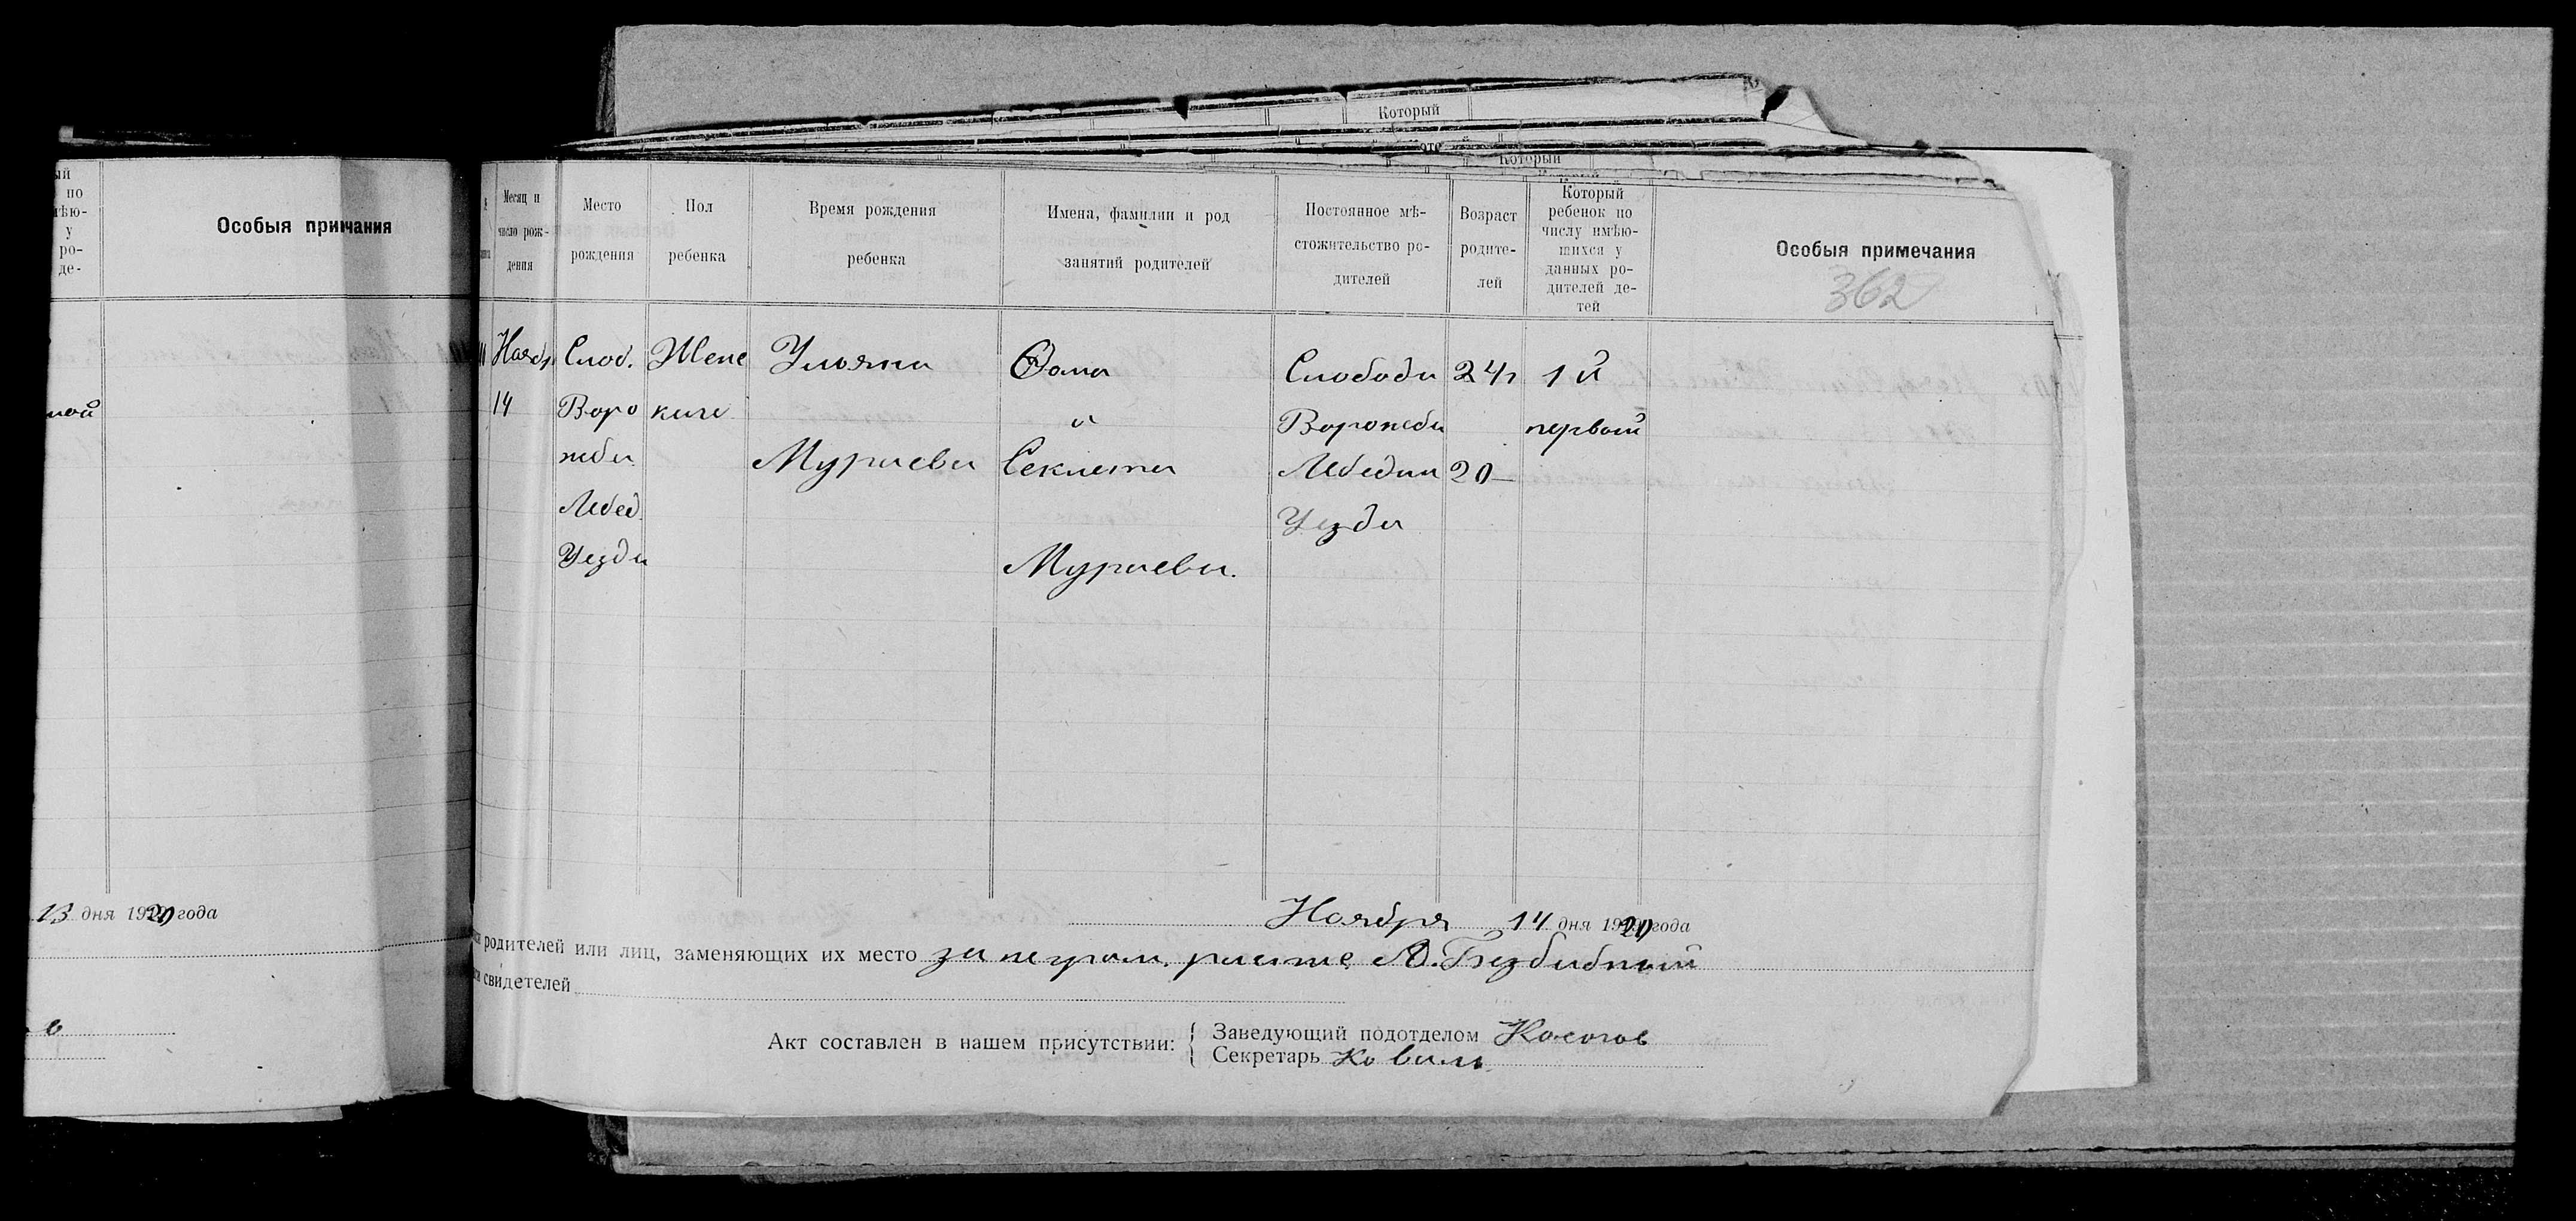 Который
Который
ый
по
мѣю-
у
ро-
де-
Особыя примчания
ной
13 дня 1920 года
Месяц и
число рож-
дения
Место
рождения
Пол
ребенка
Время рождения
ребенка
Имена, фамилии и род
занятий родителей
Постоянное мѣ-
стожительство ро-
дителей
Возраст
родите-
лей
Который
ребенок по
числу имѣю-
шихся у
данных ро-
дителей де-
тей
Особыя примечания
362
Ноябр
14
Слоб.
Воро
жба
Лебед.
Уезда
Женс
киге
Ульяна
Мураева
Фома
и
Секлета
Мураевы.
Слобода
Ворожба
Лебедин
Уезда
24 г
20 —
1 й
первый
Ноября 14 дня 1920 года
родителей или лиц, заменяющих их место за неграм. расписс. Безбибный
свидетелей
Акт составлен в нашем присутствии:
Заведующий подотделом Косогов
Секретарь Коваль